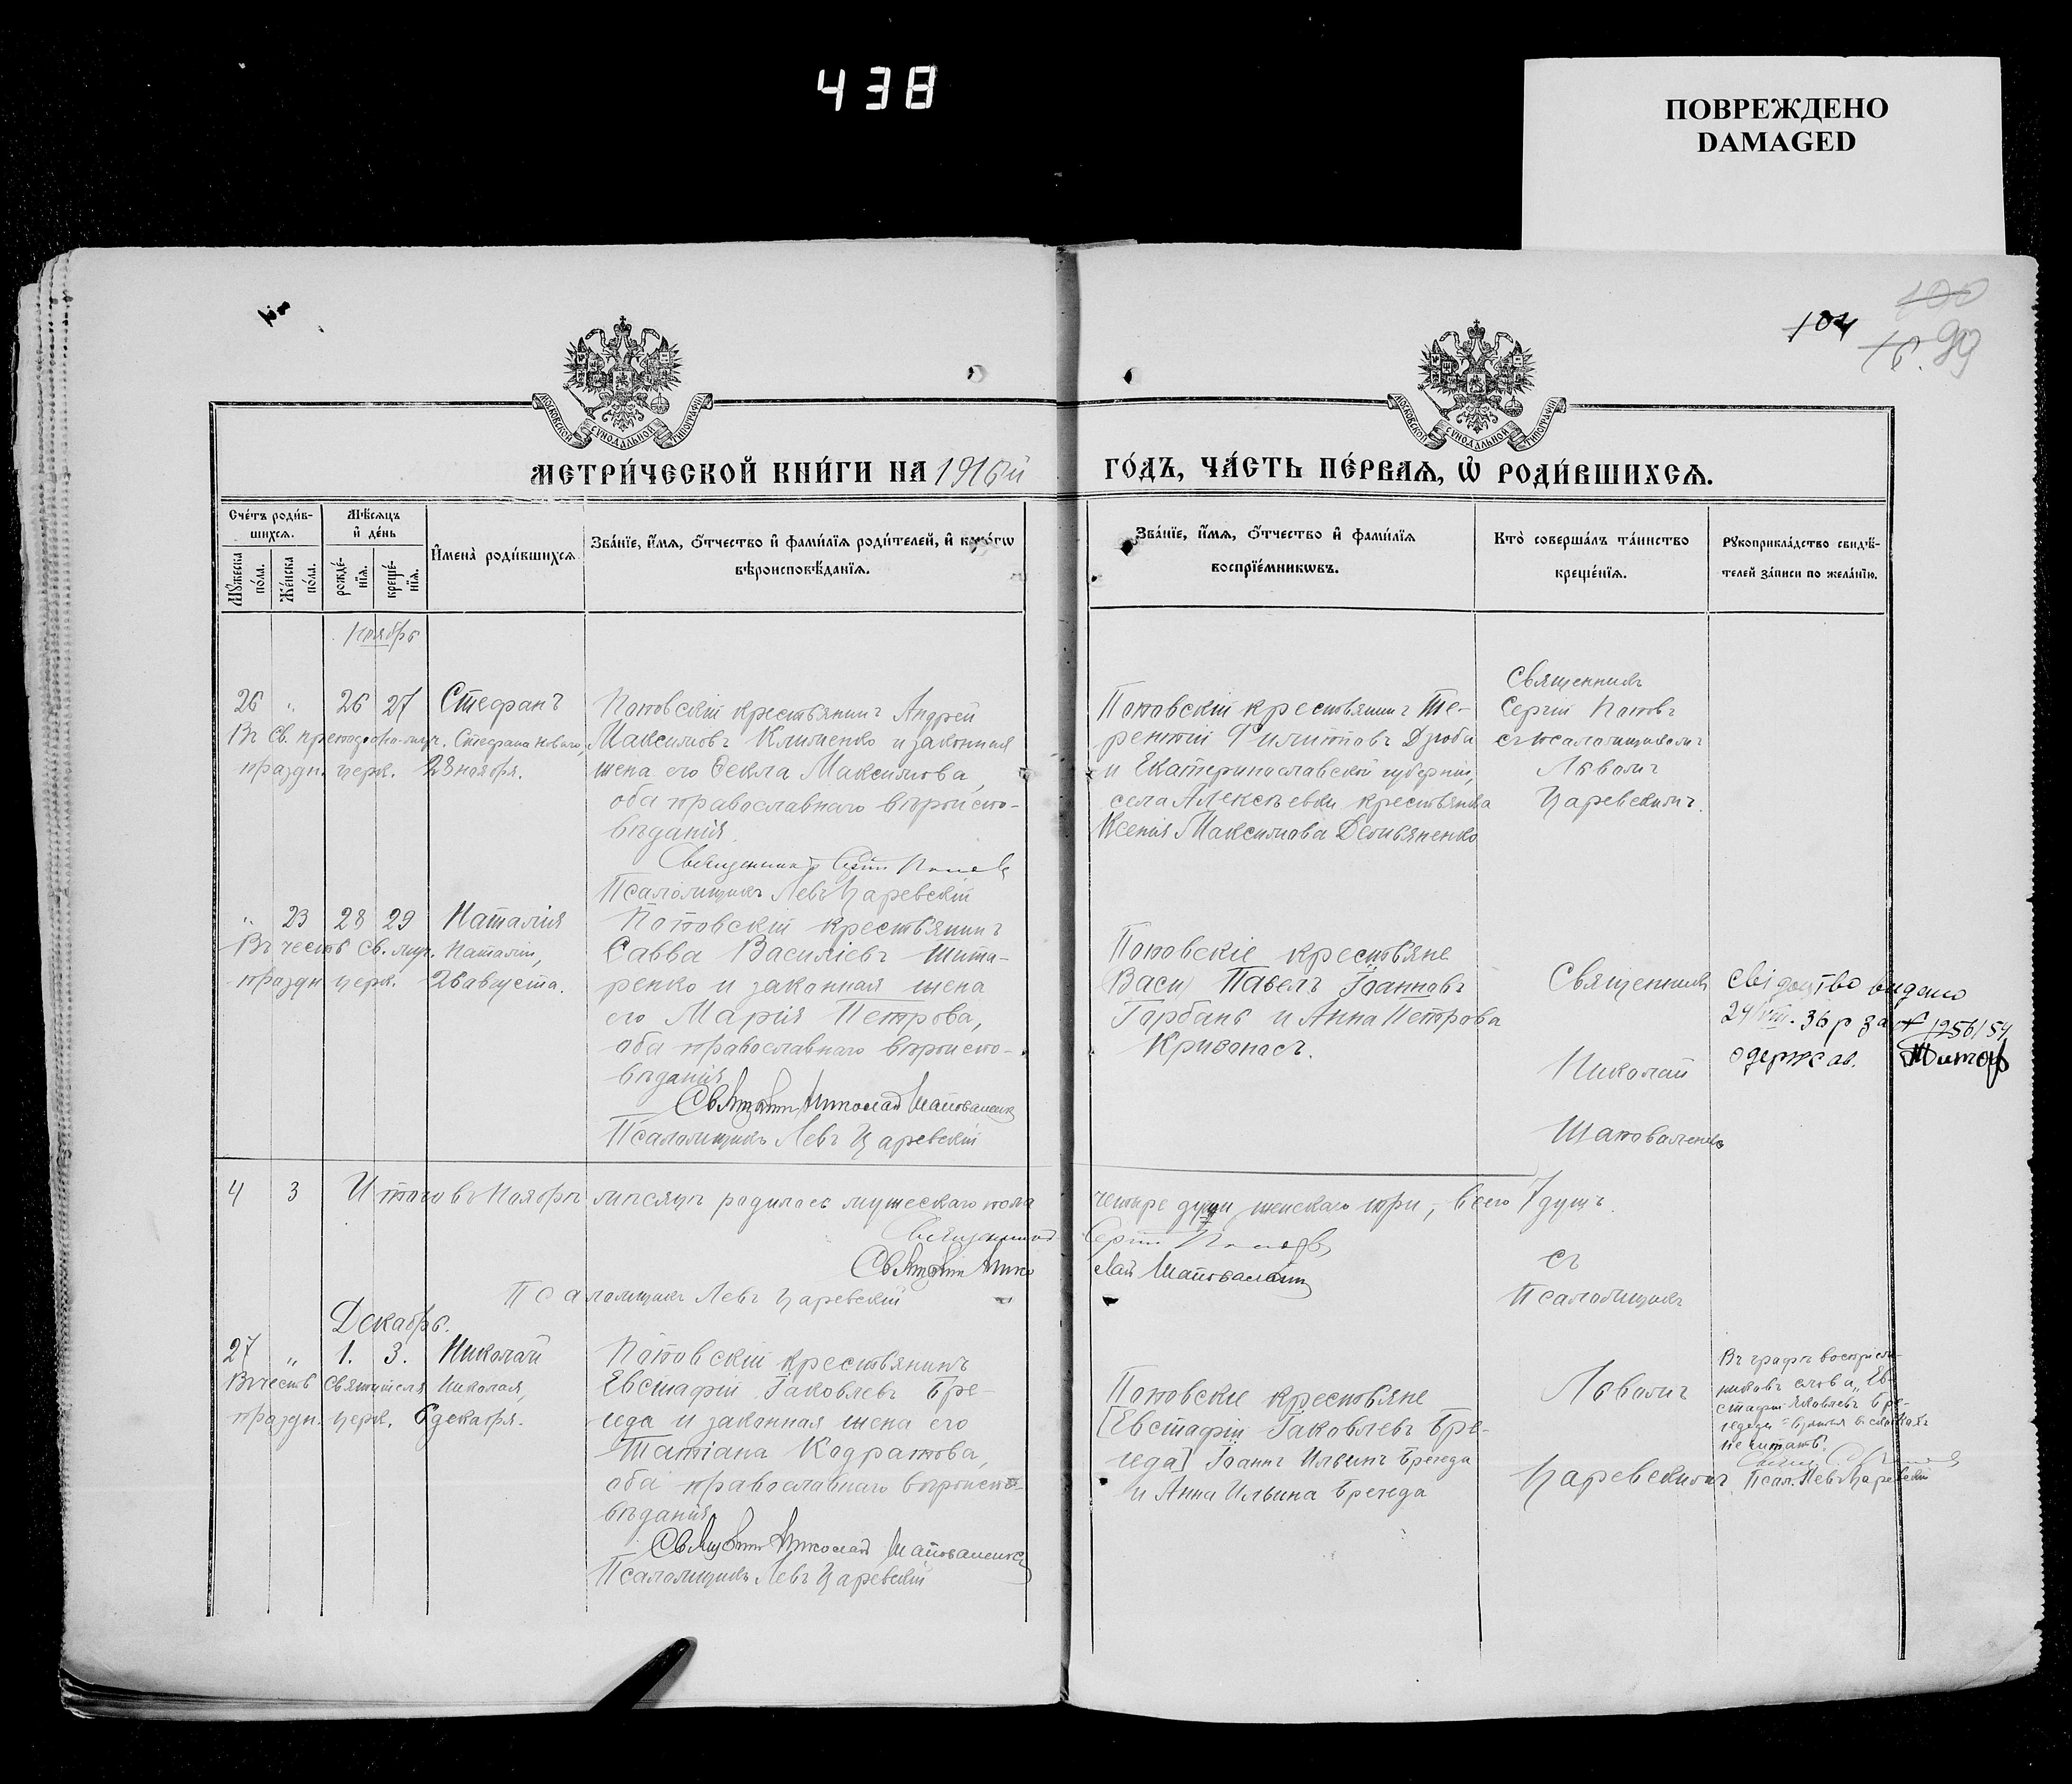 438
ПОВРЕЖДЕНО
DAMAGED
100
104
16. 99
МОСКОВСКОЙ СѴНОДАЛЬНОЙ ТИПОГРАФІИ
МОСКОВСКОЙ СѴНОДАЛЬНОЙ ТИПОГРАФІИ
МЕТРИ́ЧЕСКОЙ КНИ́ГИ НА 1916й
ГО́ДЪ, ЧА́СТЬ ПЕ́РВАѦ, Ѽ РОДИ́ВШИХСѦ.
Сче́тъ роди́в-
шихсѧ.
Мѣ́сѧцъ
и҆ де́нь
Мꙋ́жеска по́ла.
Же́нска по́ла.
рожде́-нїѧ.
креще́-нїѧ.
И҆мена̀ роди́вшихсѧ
Зва́нїе, и҆́мѧ, ѻ҆́тчество и҆ фами́лїѧ роди́телей, и҆ како́гѡ
вѣроисповѣ́данїѧ.
Зва́нїе, и҆́мѧ, ѻ҆́тчество и҆ фами́лїѧ
воспрїе́мникѡвъ.
Кто̀ соверша́лъ та́инство
креще́нїѧ.
Рꙋкоприкла́дство свидѣ́-
телей за́писи по жела́нїю.
Ноябрь
26 „ 26 27 Стефанъ
Въ св. преподобно-муч. Стефана Новаго,
праздн. церк. 28 ноября.
Поповскій крестьянинъ Андрей
Максимовъ Клименко и законная
жена его Ѳекла Максимова,
оба православнаго вѣроиспо-
вѣданія.
Священникъ Сергій Поповъ
Псаломщикъ Левъ Царевскій
Поповскій крестьянинъ Те-
рентій Филипповъ Дзюба
и Екатеринославской губерніи,
села Алексѣевки крестьянка
Ксенія Максимова Демьяненко
Священникъ
Сергій Поповъ
съ псаломщикомъ
Львомъ
Царевскимъ.
„ 23 28 29 Наталія
Въ честь св. муч. Наталіи,
праздн. церк. 26 августа.
Поповскій крестьянинъ
Савва Василіевъ Тита-
ренко и законная жена
его Марія Петрова,
оба православнаго вѣроиспо-
вѣданія
Священникъ Николай Шаповаленко
Псаломщикъ Левъ Царевскій
Поповскіе крестьяне
Васи Павелъ Іоанновъ
Горбань и Анна Петрова
Кривонос.
Священникъ
Николай
Шаповаленко
съ
Псаломщик
Львомъ
Царевскимъ
Свідоцтво видано
24/VIII. 36 р за № 1256/54
одержав.
4 3 Итого въ Ноябрѣ мѣсяцѣ родилось мужескаго пола четыре души женскаго три, всего 7 душъ.
Священникъ Сергій Поповъ
Священникъ Николай Шаповаленко
Псаломщикъ Левъ Царевскій
Декабрь.
27 „ 1. 3. Николай
Въ честь Святителя Николая,
праздн. церк. 6 декабря.
Поповскій крестьянинъ
Евстафій Іаковлевъ Бре-
геда и законная жена его
Татіана Кодратова,
оба православнаго вѣроиспо-
вѣданія
Священникъ Николай Шаповаленко
Псаломщикъ Левъ Царевскій
Поповскіе крестьяне
[Евстафій Іаковлевъ Бре-
геда] Іоаннъ Ильинъ Брегеда
и Анна Ильина Брегеда
Въ графѣ воспріем-
никовъ слова „Ев-
стафій Яковлевъ Бре-
геда" взятыя въ скобкахъ
не читать.
Псал. Левъ Царевскій